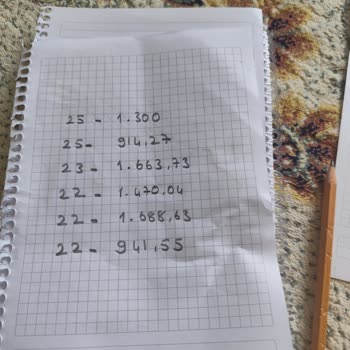 25 - 1.300
25- 914,27
23 - 1.663,73
22 - 1.470.04
22 - 1.688,63
22 - 941,55